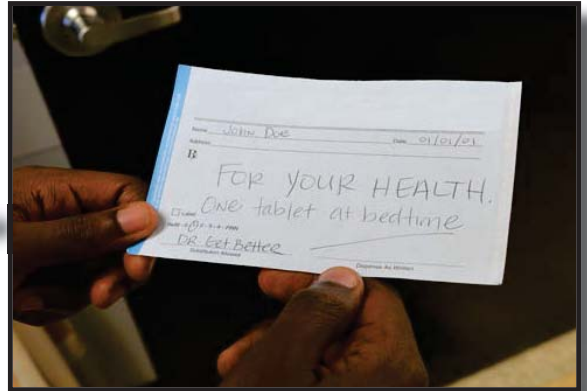 Name John Doe Date 01/01/01
Address
℞
FOR YOUR HEALTH.
Label One tablet at bedtime
Refill 0-1-2-3-4-PRN
DR. Get Better
Substitution Allowed Dispense As Written